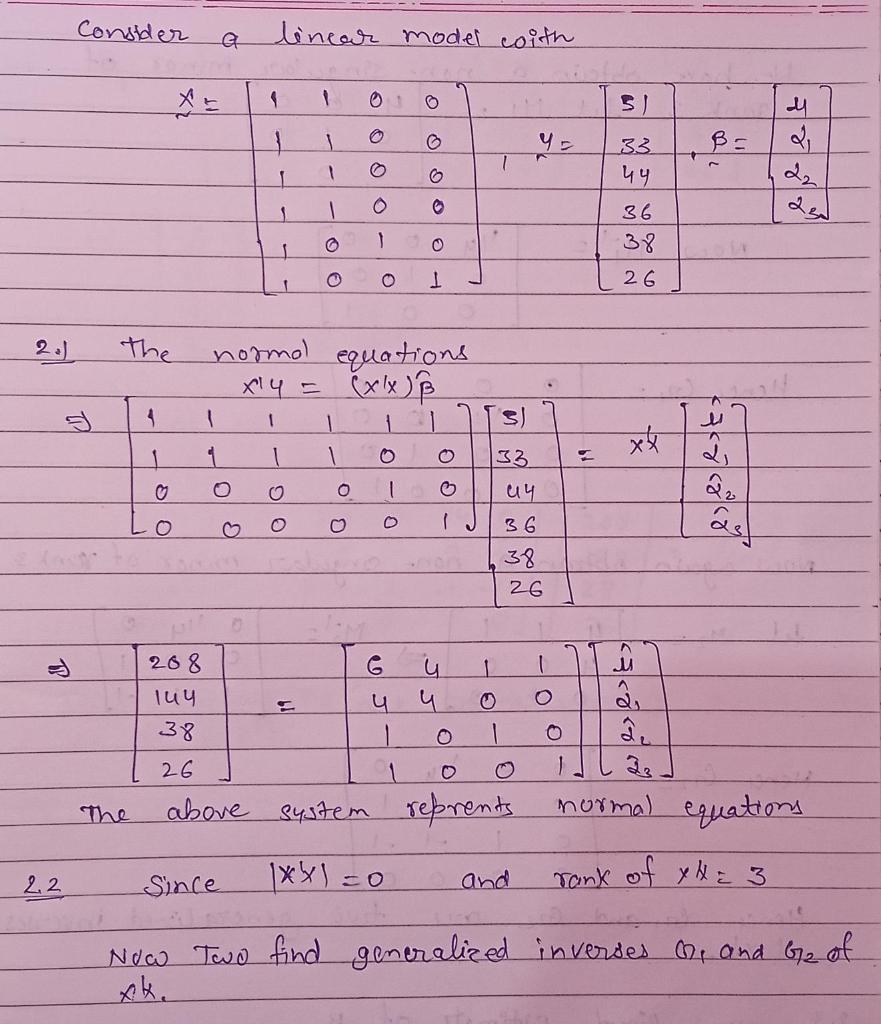 Consider a linear model with
X = [ 1 1 0 0 ; 1 1 0 0 ; 1 1 0 0 ; 1 1 0 0 ; 1 0 1 0 ; 1 0 0 1 ] , y = [ 31 ; 33 ; 44 ; 36 ; 38 ; 26 ] , β = [ μ ; α₁ ; α₂ ; α₃ ]
2.1 The normal equations
x'y = (x'x)β̂
⇒ [ 1 1 1 1 1 1 ; 1 1 1 1 0 0 ; 0 0 0 0 1 0 ; 0 0 0 0 0 1 ] [ 31 ; 33 ; 44 ; 36 ; 38 ; 26 ] = x'x [ μ̂ ; α̂₁ ; α̂₂ ; α̂₃ ]
⇒ [ 208 ; 144 ; 38 ; 26 ] = [ 6 4 1 1 ; 4 4 0 0 ; 1 0 1 0 ; 1 0 0 1 ] [ μ̂ ; α̂₁ ; α̂₂ ; α̂₃ ]
The above system reprents normal equations
2.2 Since |x'x| = 0 and rank of x'x = 3
Now Two find generalized inverses G₁ and G₂ of
x'x.